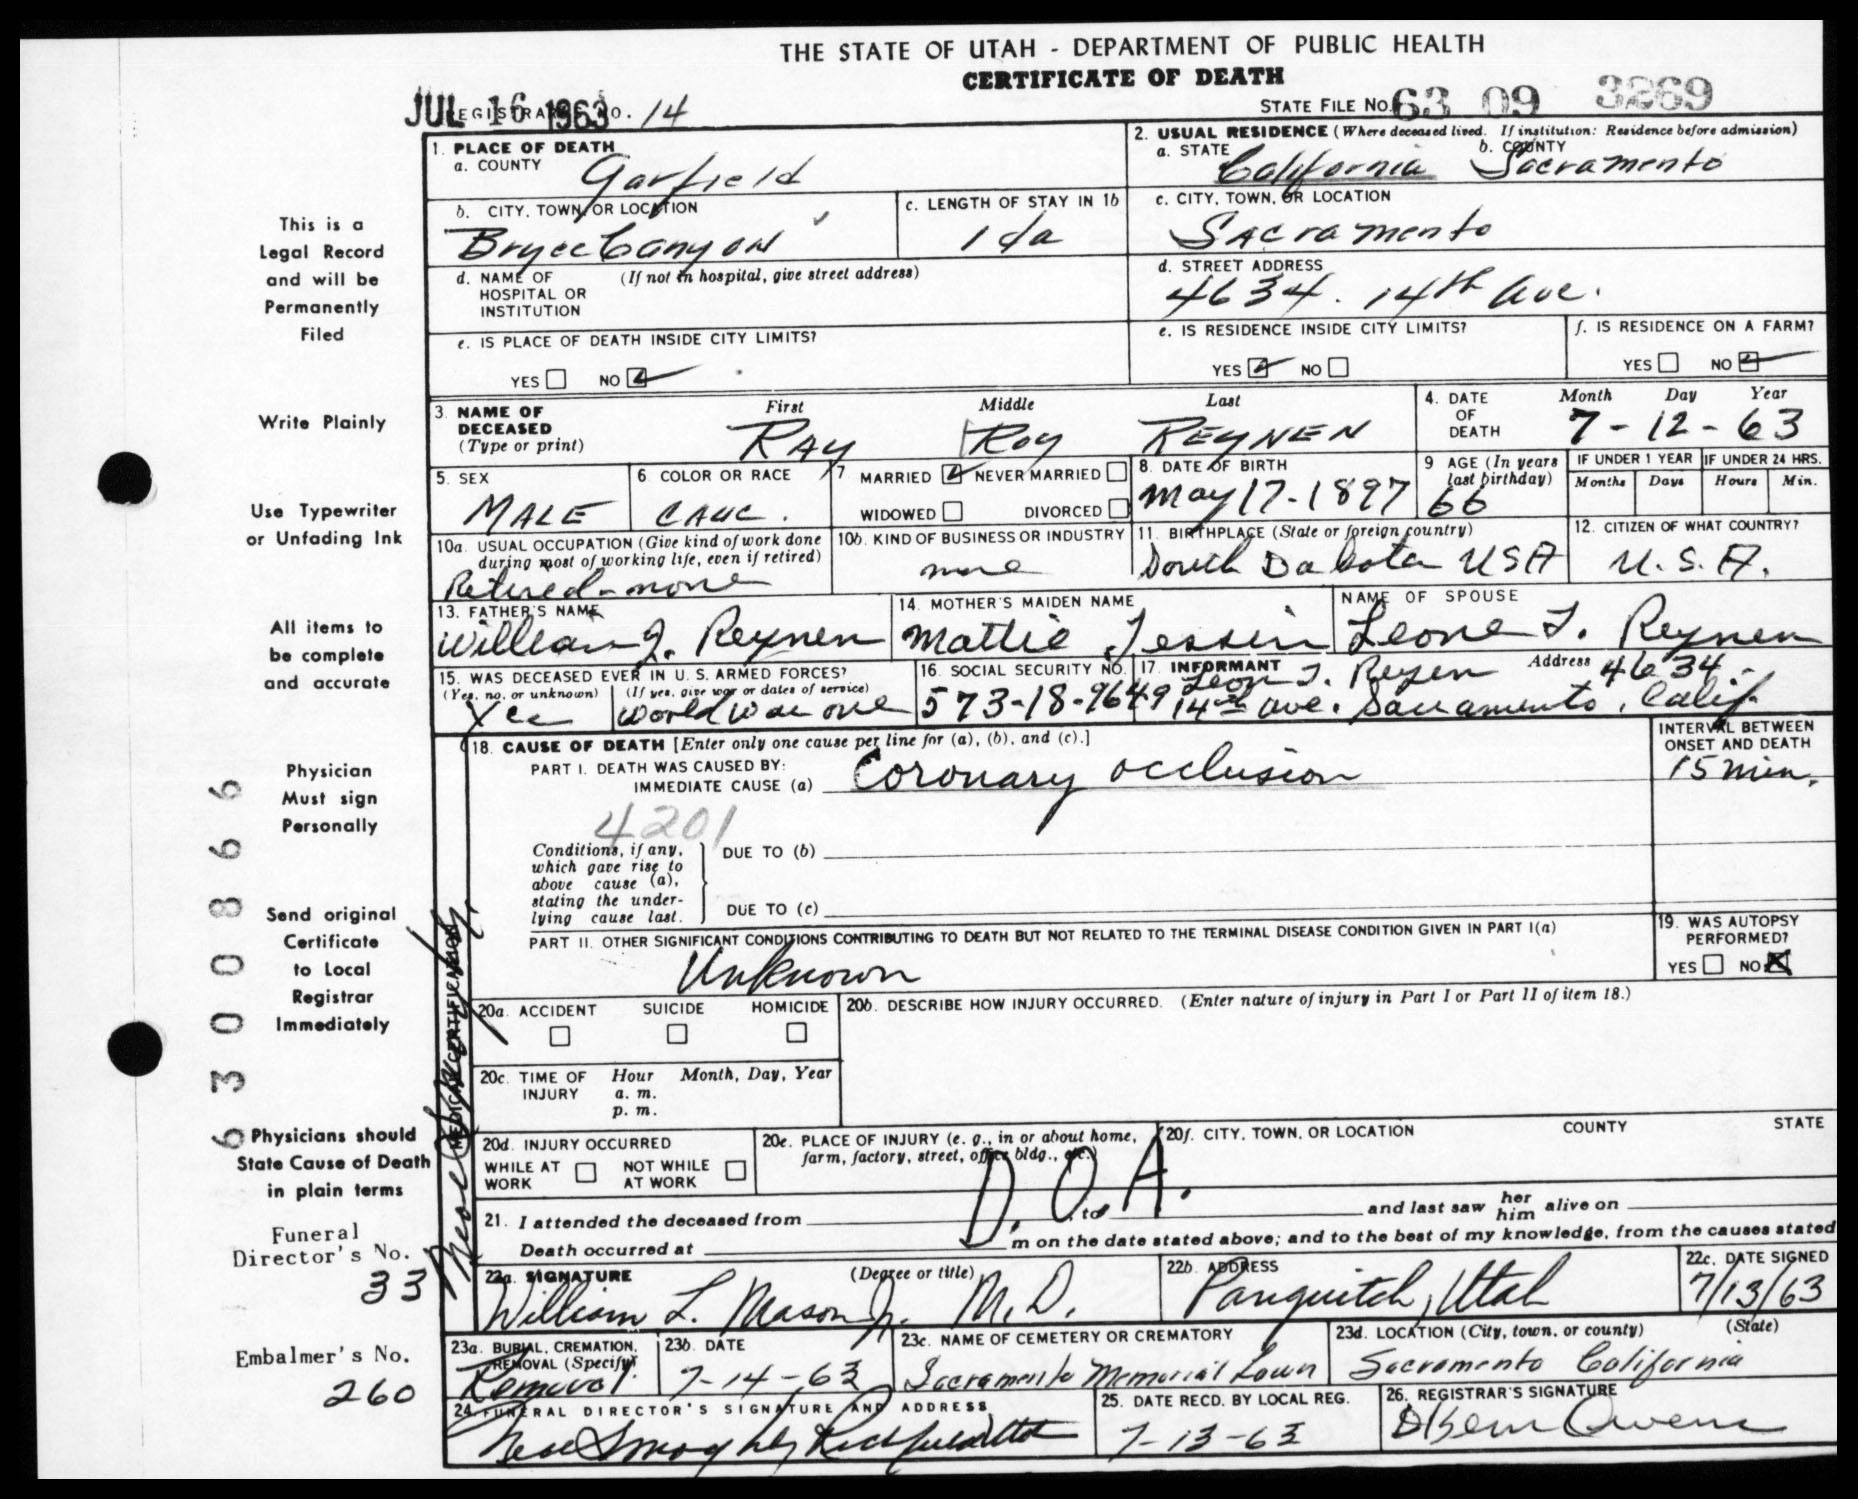 THE STATE OF UTAH - DEPARTMENT OF PUBLIC HEALTH
CERTIFICATE OF DEATH
JUL 16 1963
REGISTRAR'S NO. 14
STATE FILE NO. 63 09 3269
1. PLACE OF DEATH
a. COUNTY Garfield
2. USUAL RESIDENCE (Where deceased lived. If institution: Residence before admission)
a. STATE California b. COUNTY Sacramento
b. CITY, TOWN, OR LOCATION Bryce Canyon
c. LENGTH OF STAY IN 1b 1 da
c. CITY, TOWN, OR LOCATION Sacramento
d. NAME OF HOSPITAL OR INSTITUTION (If not in hospital, give street address)
d. STREET ADDRESS 4634. 14th Ave.
e. IS PLACE OF DEATH INSIDE CITY LIMITS?
YES NO
e. IS RESIDENCE INSIDE CITY LIMITS?
YES NO
f. IS RESIDENCE ON A FARM?
YES NO
3. NAME OF DECEASED (Type or print)
First Middle Last
RAY Roy REYNEN
4. DATE OF DEATH
Month Day Year
7 - 12 - 63
5. SEX MALE
6. COLOR OR RACE CAUC.
7 MARRIED NEVER MARRIED
WIDOWED DIVORCED
8. DATE OF BIRTH May 17-1897
9 AGE (In years last birthday) 66
IF UNDER 1 YEAR Months Days
IF UNDER 24 HRS. Hours Min.
10a. USUAL OCCUPATION (Give kind of work done during most of working life, even if retired)
Retired - none
10b. KIND OF BUSINESS OR INDUSTRY
none
11. BIRTHPLACE (State or foreign country)
South Dakota USA
12. CITIZEN OF WHAT COUNTRY?
U.S.A.
13. FATHER'S NAME
William J. Reynen
14. MOTHER'S MAIDEN NAME
Mattie Jessin
NAME OF SPOUSE
Leone I. Reynen
15. WAS DECEASED EVER IN U. S. ARMED FORCES?
(Yes, no, or unknown) (If yes, give war or dates of service)
Yes World War one
16. SOCIAL SECURITY NO.
573-18-9649
17. INFORMANT Address
Leon I. Reyen 4634.
14th ave. Sacramento, Calif.
18. CAUSE OF DEATH [Enter only one cause per line for (a), (b), and (c).]
PART I. DEATH WAS CAUSED BY:
IMMEDIATE CAUSE (a) Coronary occlusion
INTERVAL BETWEEN ONSET AND DEATH
15 min.
4201
Conditions, if any, which gave rise to above cause (a), stating the underlying cause last.
DUE TO (b)
DUE TO (c)
PART II. OTHER SIGNIFICANT CONDITIONS CONTRIBUTING TO DEATH BUT NOT RELATED TO THE TERMINAL DISEASE CONDITION GIVEN IN PART I(a)
Unknown
19. WAS AUTOPSY PERFORMED?
YES NO
MEDICAL CERTIFICATION
20a. ACCIDENT SUICIDE HOMICIDE
20b. DESCRIBE HOW INJURY OCCURRED. (Enter nature of injury in Part I or Part II of item 18.)
20c. TIME OF INJURY Hour Month, Day, Year
a. m.
p. m.
20d. INJURY OCCURRED
WHILE AT WORK NOT WHILE AT WORK
20e. PLACE OF INJURY (e. g., in or about home, farm, factory, street, office bldg., etc.)
20f. CITY, TOWN, OR LOCATION COUNTY STATE
D. O. A.
21. I attended the deceased from to and last saw her him alive on
Death occurred at m on the date stated above; and to the best of my knowledge, from the causes stated
22a. SIGNATURE (Degree or title)
William L. Mason Jr. M.D.
22b. ADDRESS
Panguitch, Utah
22c. DATE SIGNED
7/13/63
23a. BURIAL, CREMATION, REMOVAL (Specify)
Removal.
23b. DATE
7-14-63
23c. NAME OF CEMETERY OR CREMATORY
Sacramento Memorial Lawn
23d. LOCATION (City, town, or county) (State)
Sacramento California
24. FUNERAL DIRECTOR'S SIGNATURE AND ADDRESS
25. DATE RECD. BY LOCAL REG.
7-13-63
26. REGISTRAR'S SIGNATURE
Owens
This is a
Legal Record
and will be
Permanently
Filed
Write Plainly
Use Typewriter
or Unfading Ink
All items to
be complete
and accurate
Physician
Must sign
Personally
Send original
Certificate
to Local
Registrar
Immediately
Physicians should
State Cause of Death
in plain terms
Funeral
Director's No.
33
Embalmer's No.
260
6300866